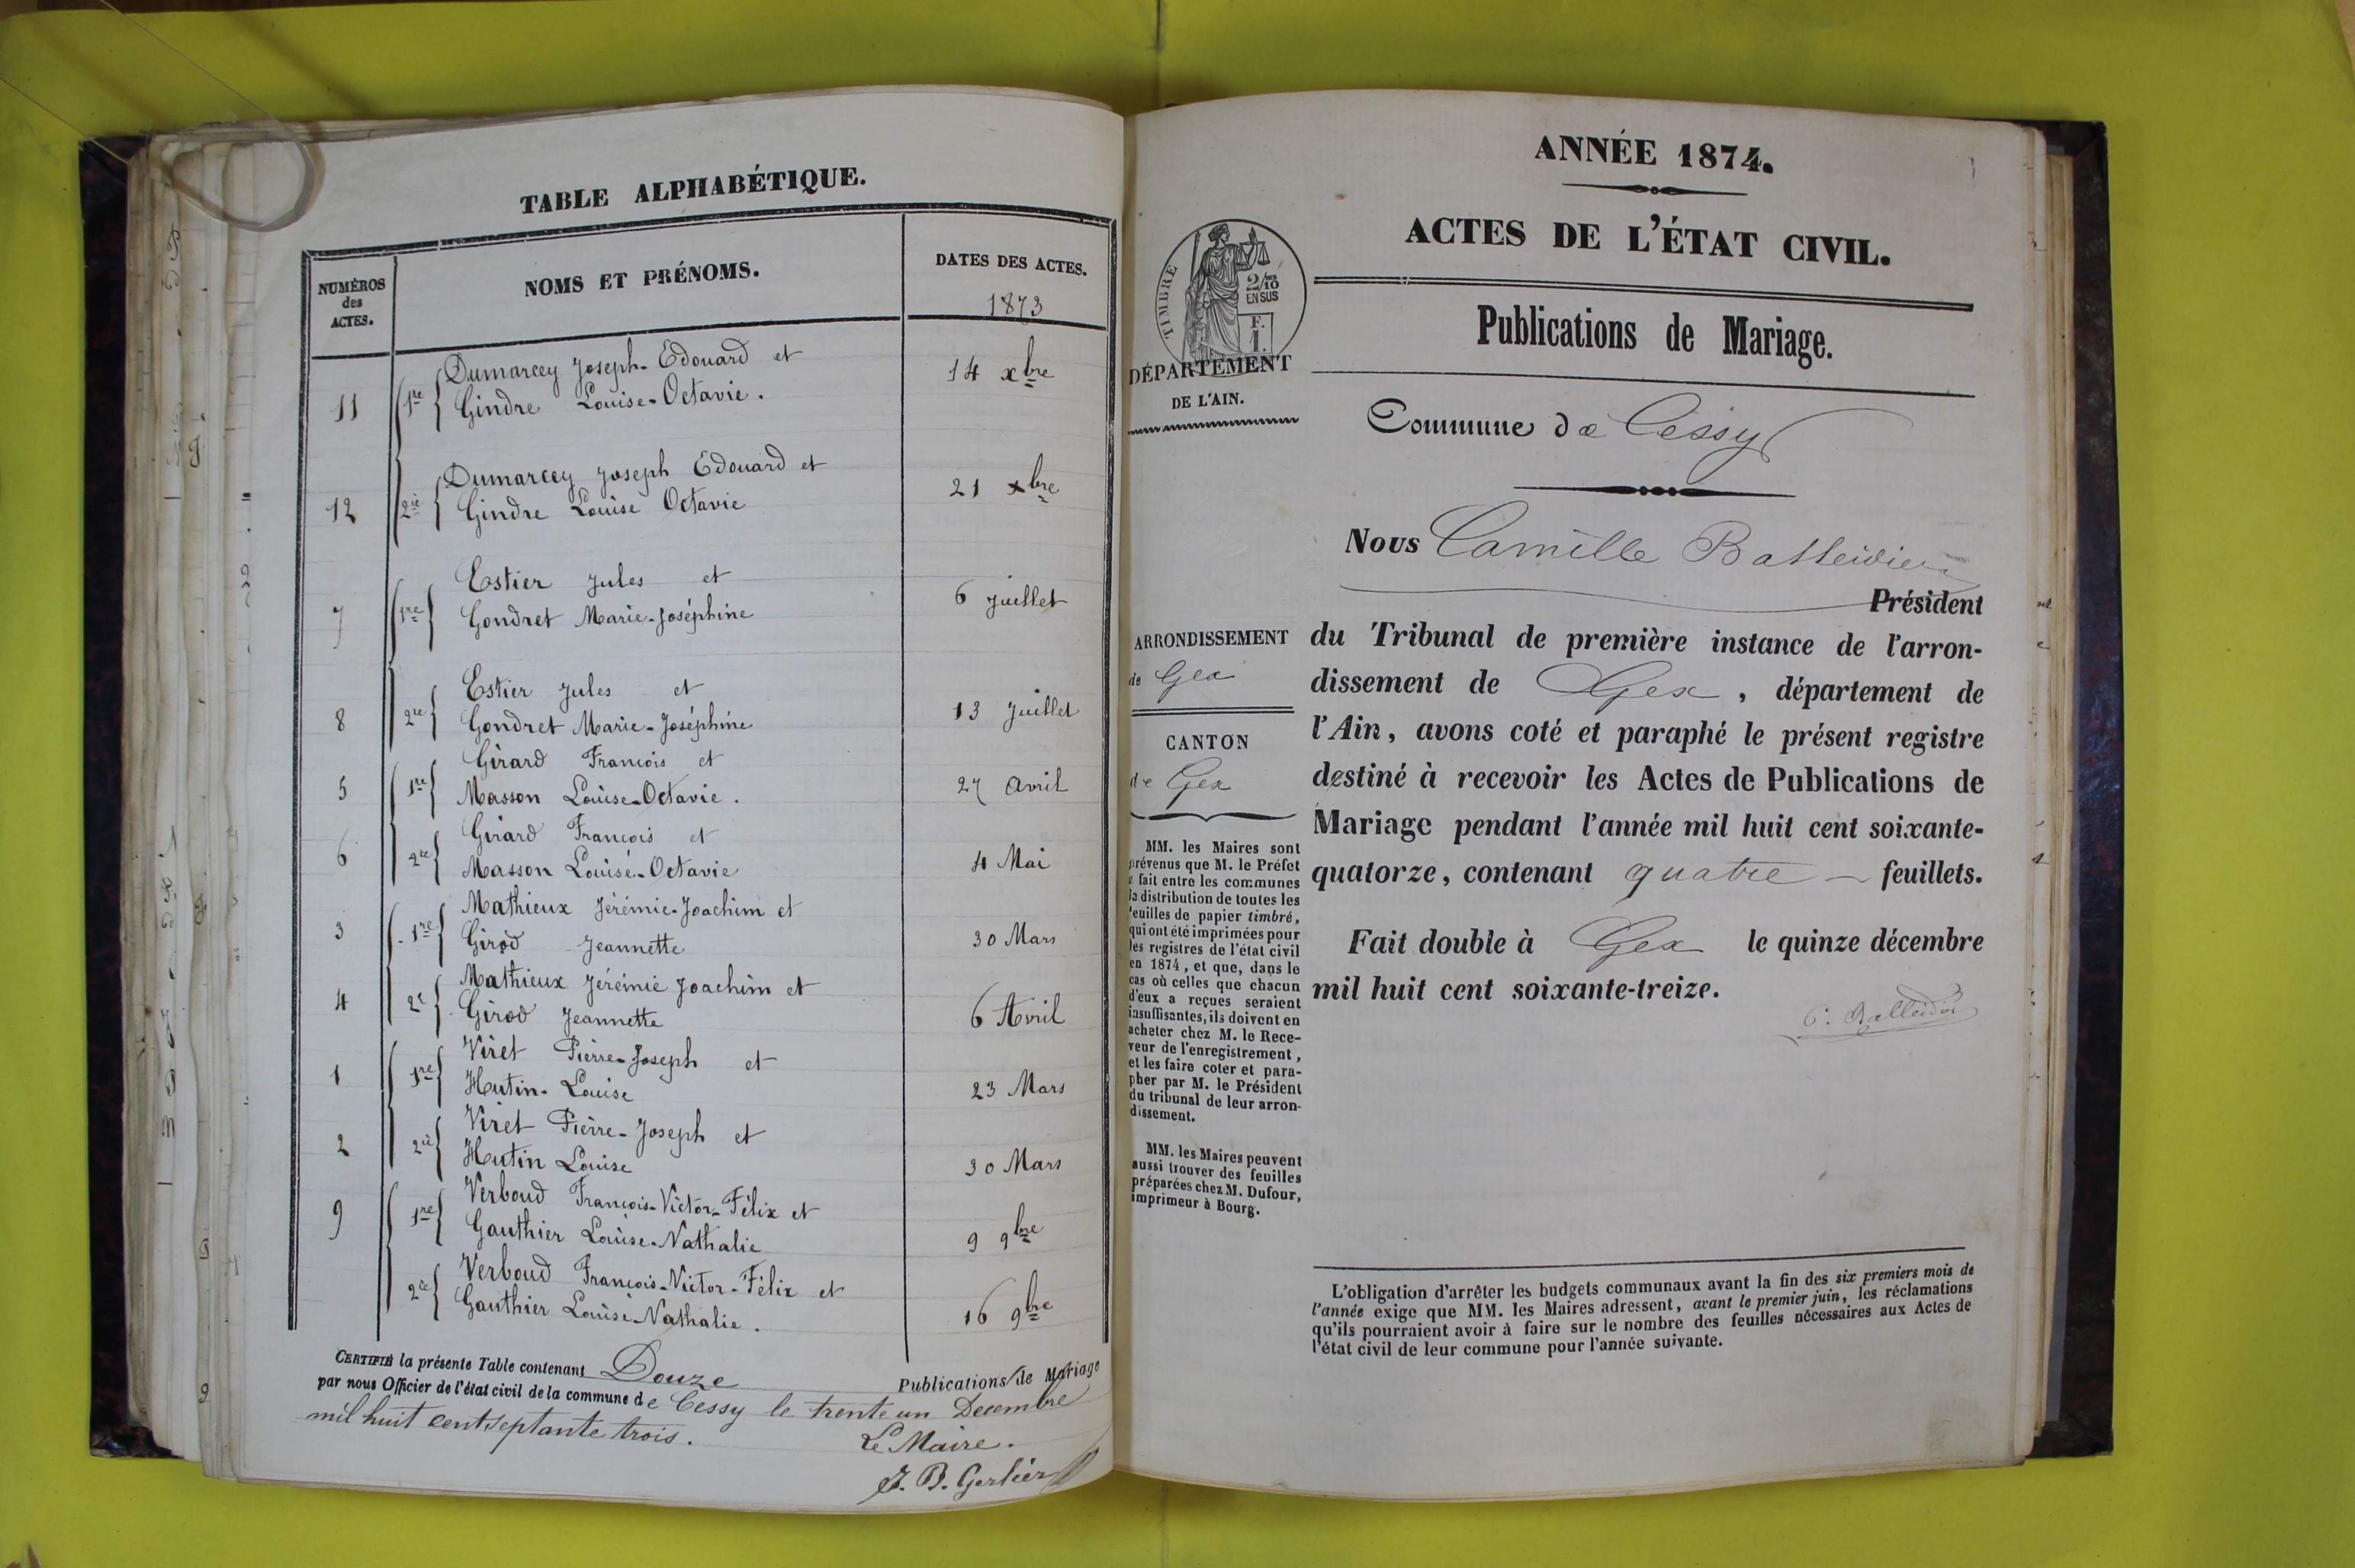 TABLE ALPHABÉTIQUE.
NUMÉROS
des
ACTES.
NOMS ET PRÉNOMS.
DATES DES ACTES.
1873
11 1re Dumarcey Joseph-Edouard et
Gindre Louise-Octavie. 14 xbre
12 2e Dumarcey Joseph Edouard et
Gindre Louise Octavie 21 xbre
7 1re Estier Jules et
Gondret Marie-Joséphine 6 Juillet
8 2e Estier Jules et
Gondret Marie-Joséphine 13 Juillet
5 1re Girard François et
Masson Louise-Octavie. 27 Avril
6 2e Girard François et
Masson Louise-Octavie 4 Mai
3 1re Mathieux Jérémie-Joachim et
Girod Jeannette 30 Mars
4 2e Mathieux Jérémie Joachim et
Girod Jeannette 6 Avril
1 1re Viret Pierre-Joseph et
Hutin-Louise 23 Mars
2 2e Viret Pierre-Joseph et
Hutin Louise 30 Mars
9 1re Verboud François-Victor-Félix et
Gauthier Louise-Nathalie 9 9bre
2e Verboud François-Victor-Félix et
Gauthier Louise-Nathalie. 16 9bre
CERTIFIÉ la présente Table contenant Douze Publications de Mariage
par nous Officier de l'état civil de la commune de Cessy le trente un Decembre
mil huit cent septante trois.
Le Maire.
J. B. Gerlier
ANNÉE 1874.
ACTES DE L'ÉTAT CIVIL.
Publications de Mariage.
TIMBRE
2/10
EN SUS
F.
1.
DÉPARTEMENT
DE L'AIN.
Commune de Cessy
Nous Camille
Président
ARRONDISSEMENT
de Gex
CANTON
de Gex
du Tribunal de première instance de l'arron-
dissement de Gex, département de
l'Ain, avons coté et paraphé le présent registre
destiné à recevoir les Actes de Publications de
Mariage pendant l'année mil huit cent soixante-
quatorze, contenant quatre feuillets.
Fait double à Gex le quinze décembre
mil huit cent soixante-treize.
MM. les Maires sont
prévenus que M. le Préfet
a fait entre les communes
la distribution de toutes les
feuilles de papier timbré,
qui ont été imprimées pour
les registres de l'état civil
en 1874, et que, dans le
cas où celles que chacun
d'eux a reçues seraient
insuffisantes, ils doivent en
acheter chez M. le Rece-
veur de l'enregistrement,
et les faire coter et para-
pher par M. le Président
du tribunal de leur arron-
dissement.
MM. les Maires peuvent
aussi trouver des feuilles
préparées chez M. Dufour,
imprimeur à Bourg.
L'obligation d'arrêter les budgets communaux avant la fin des six premiers mois de
l'année exige que MM. les Maires adressent, avant le premier juin, les réclamations
qu'ils pourraient avoir à faire sur le nombre des feuilles nécessaires aux Actes de
l'état civil de leur commune pour l'année suivante.